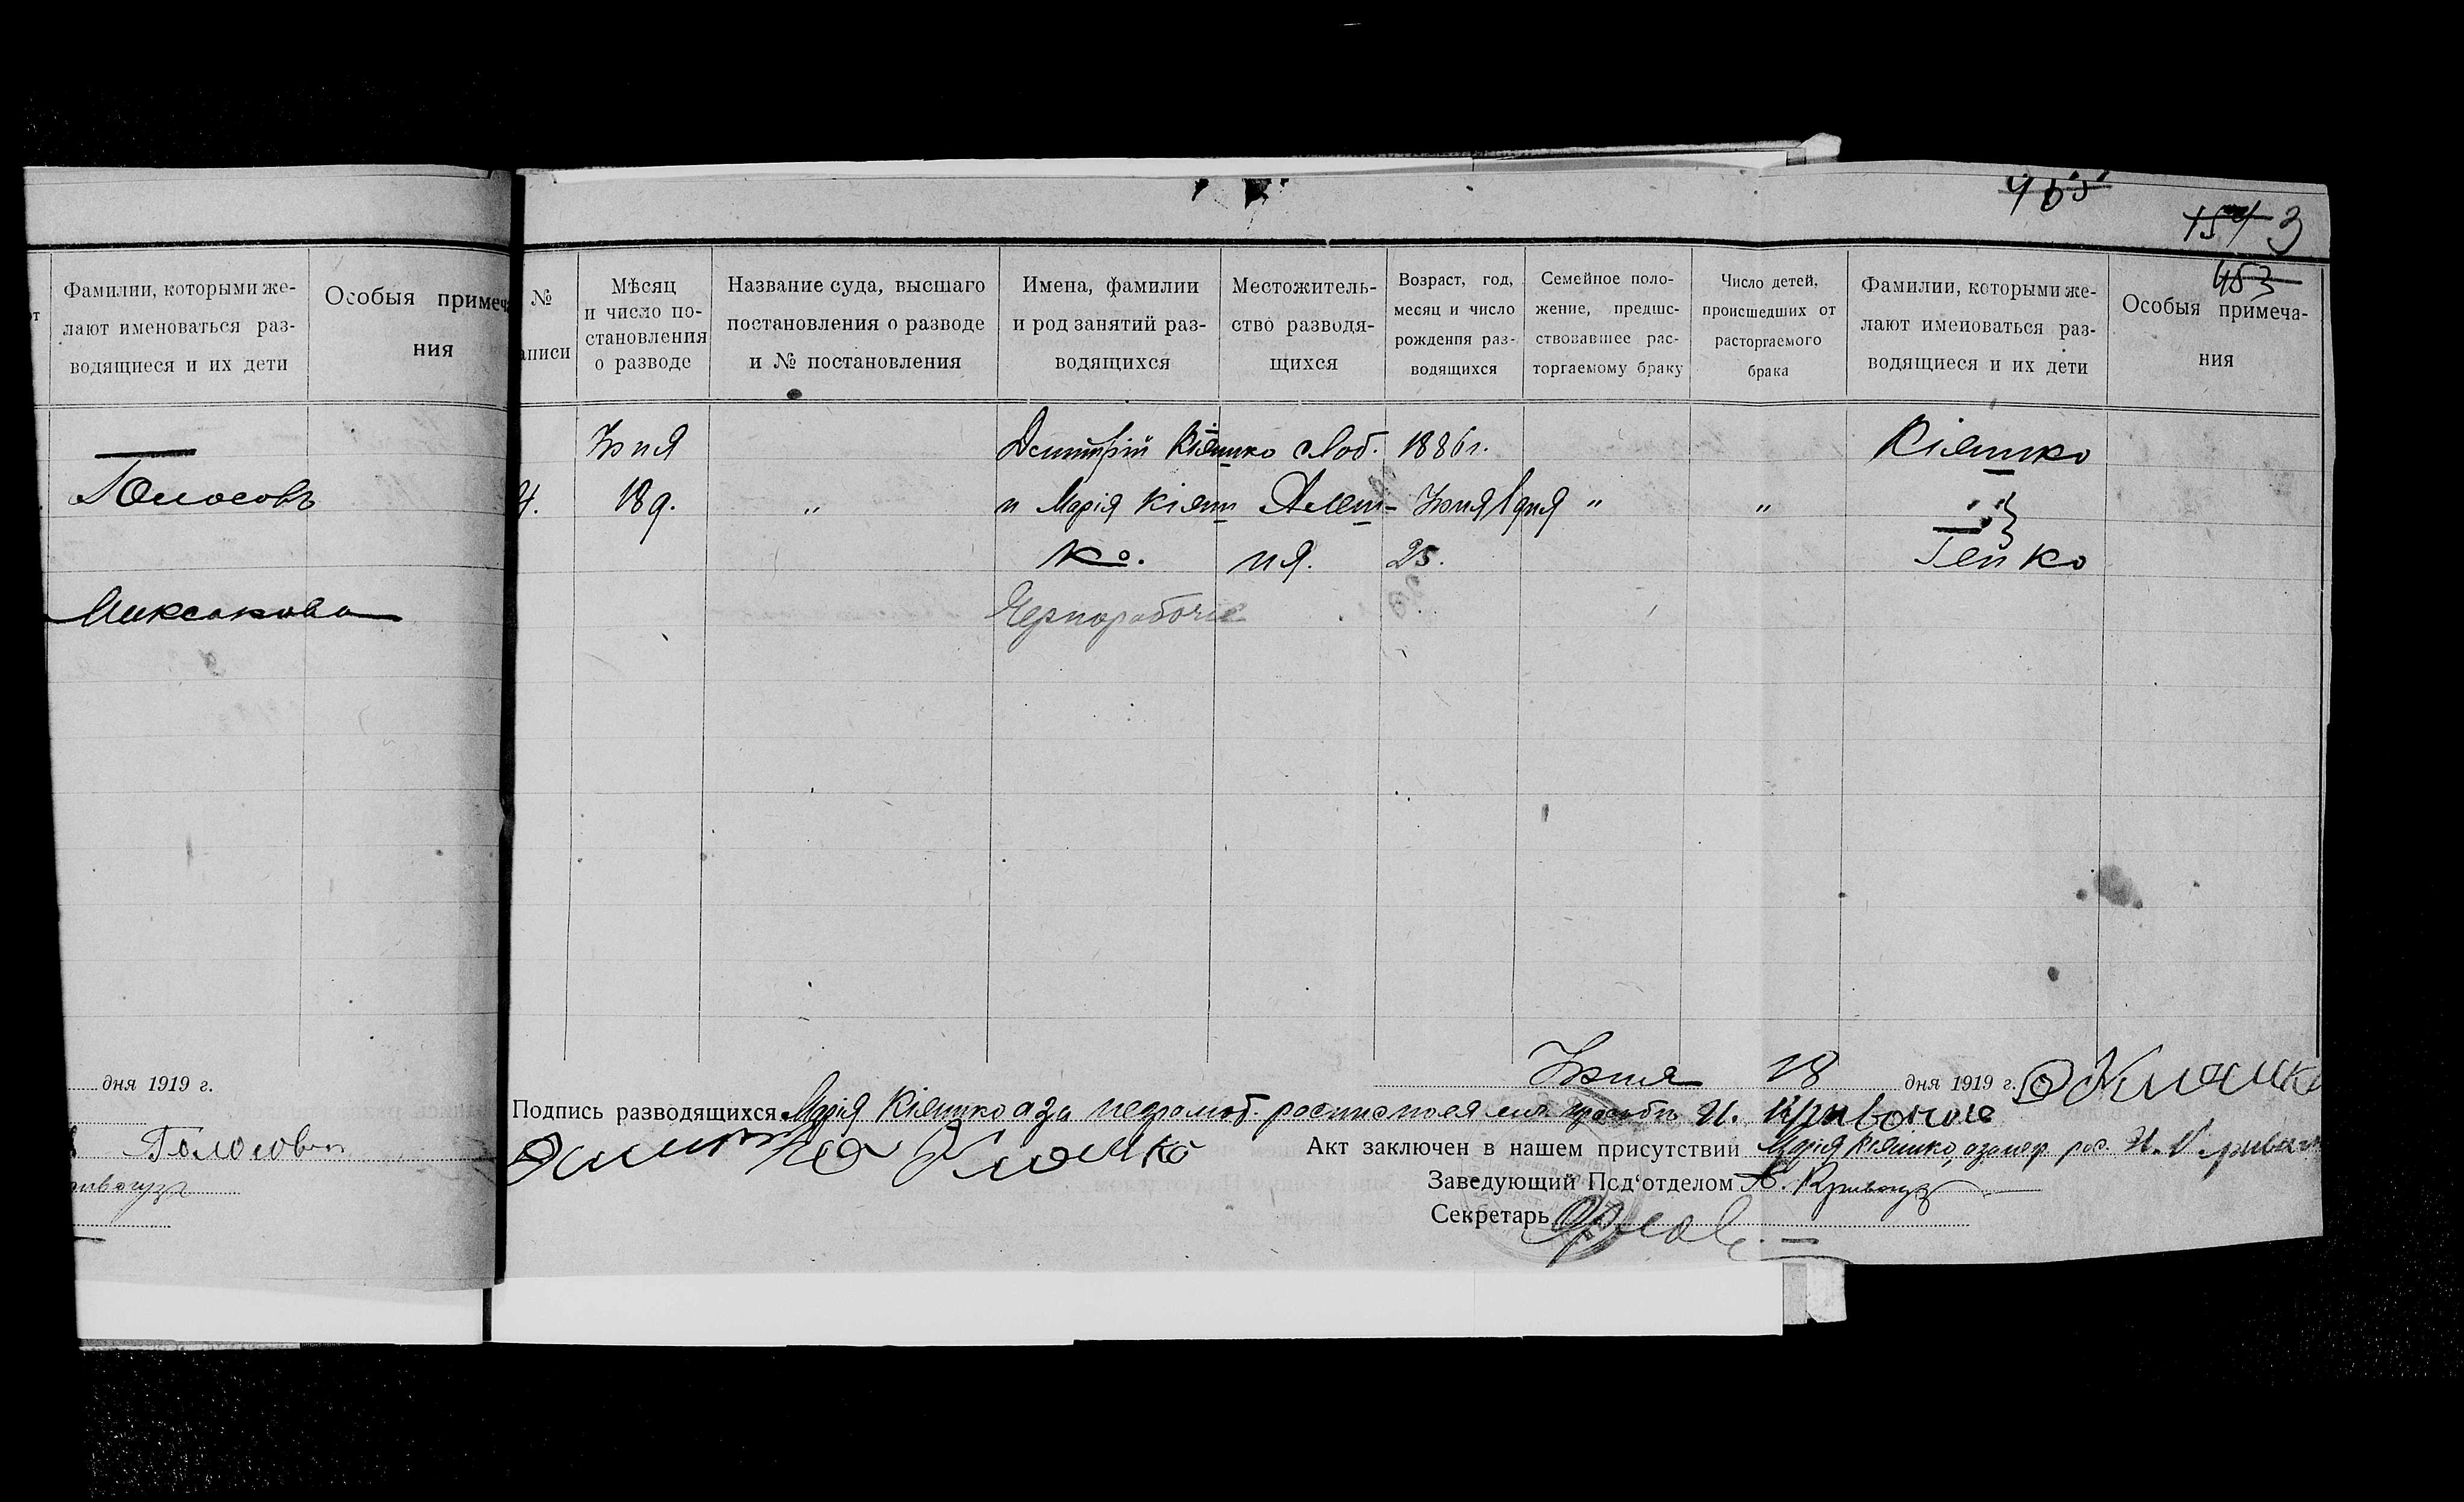 455
154 3
453
Фамилии, которыми же-
лают именоваться раз-
водящиеся и их дети
Особыя примеча
ния
Голосовъ
Аиксакова
дня 1919 г.
Голосовъ
ривогуз
№
аписи
Мѣсяц
и число по-
становления
о разводе
Название суда, высшаго
постановления о разводе
и № постановления
Имена, фамилии
и род занятий раз-
водящихся
Местожитель-
ство разводя-
щихся
Возраст, год,
месяц и число
рождения раз-
водящихся
Семейное поло-
жение, предше-
ствовавшее рас-
торгаемому браку
Число детей,
происшедших от
расторгаемого
брака
Фамилии, которыми же-
лают именоваться раз-
водящиеся и их дети
Особыя примеча-
ния
Іюня Дмитрій Кіяшко Слоб. 1886 г. Кіяшко
4. 18 д. " и Марія Кіяш- Алеш- Іюня 1 дня " " "
ко. ня. 25. Гепко
Чернорабочіе
Іюня 18 дня 1919 г.
Подпись разводящихся Марія Кіяшко а за неграмот. расписался
Дмитрий Кияшко
Акт заключен в нашем присутствии Марія Кіяшко, а за нер. рос.
Заведующий Под'отделом А. Кривогуз
Секретарь